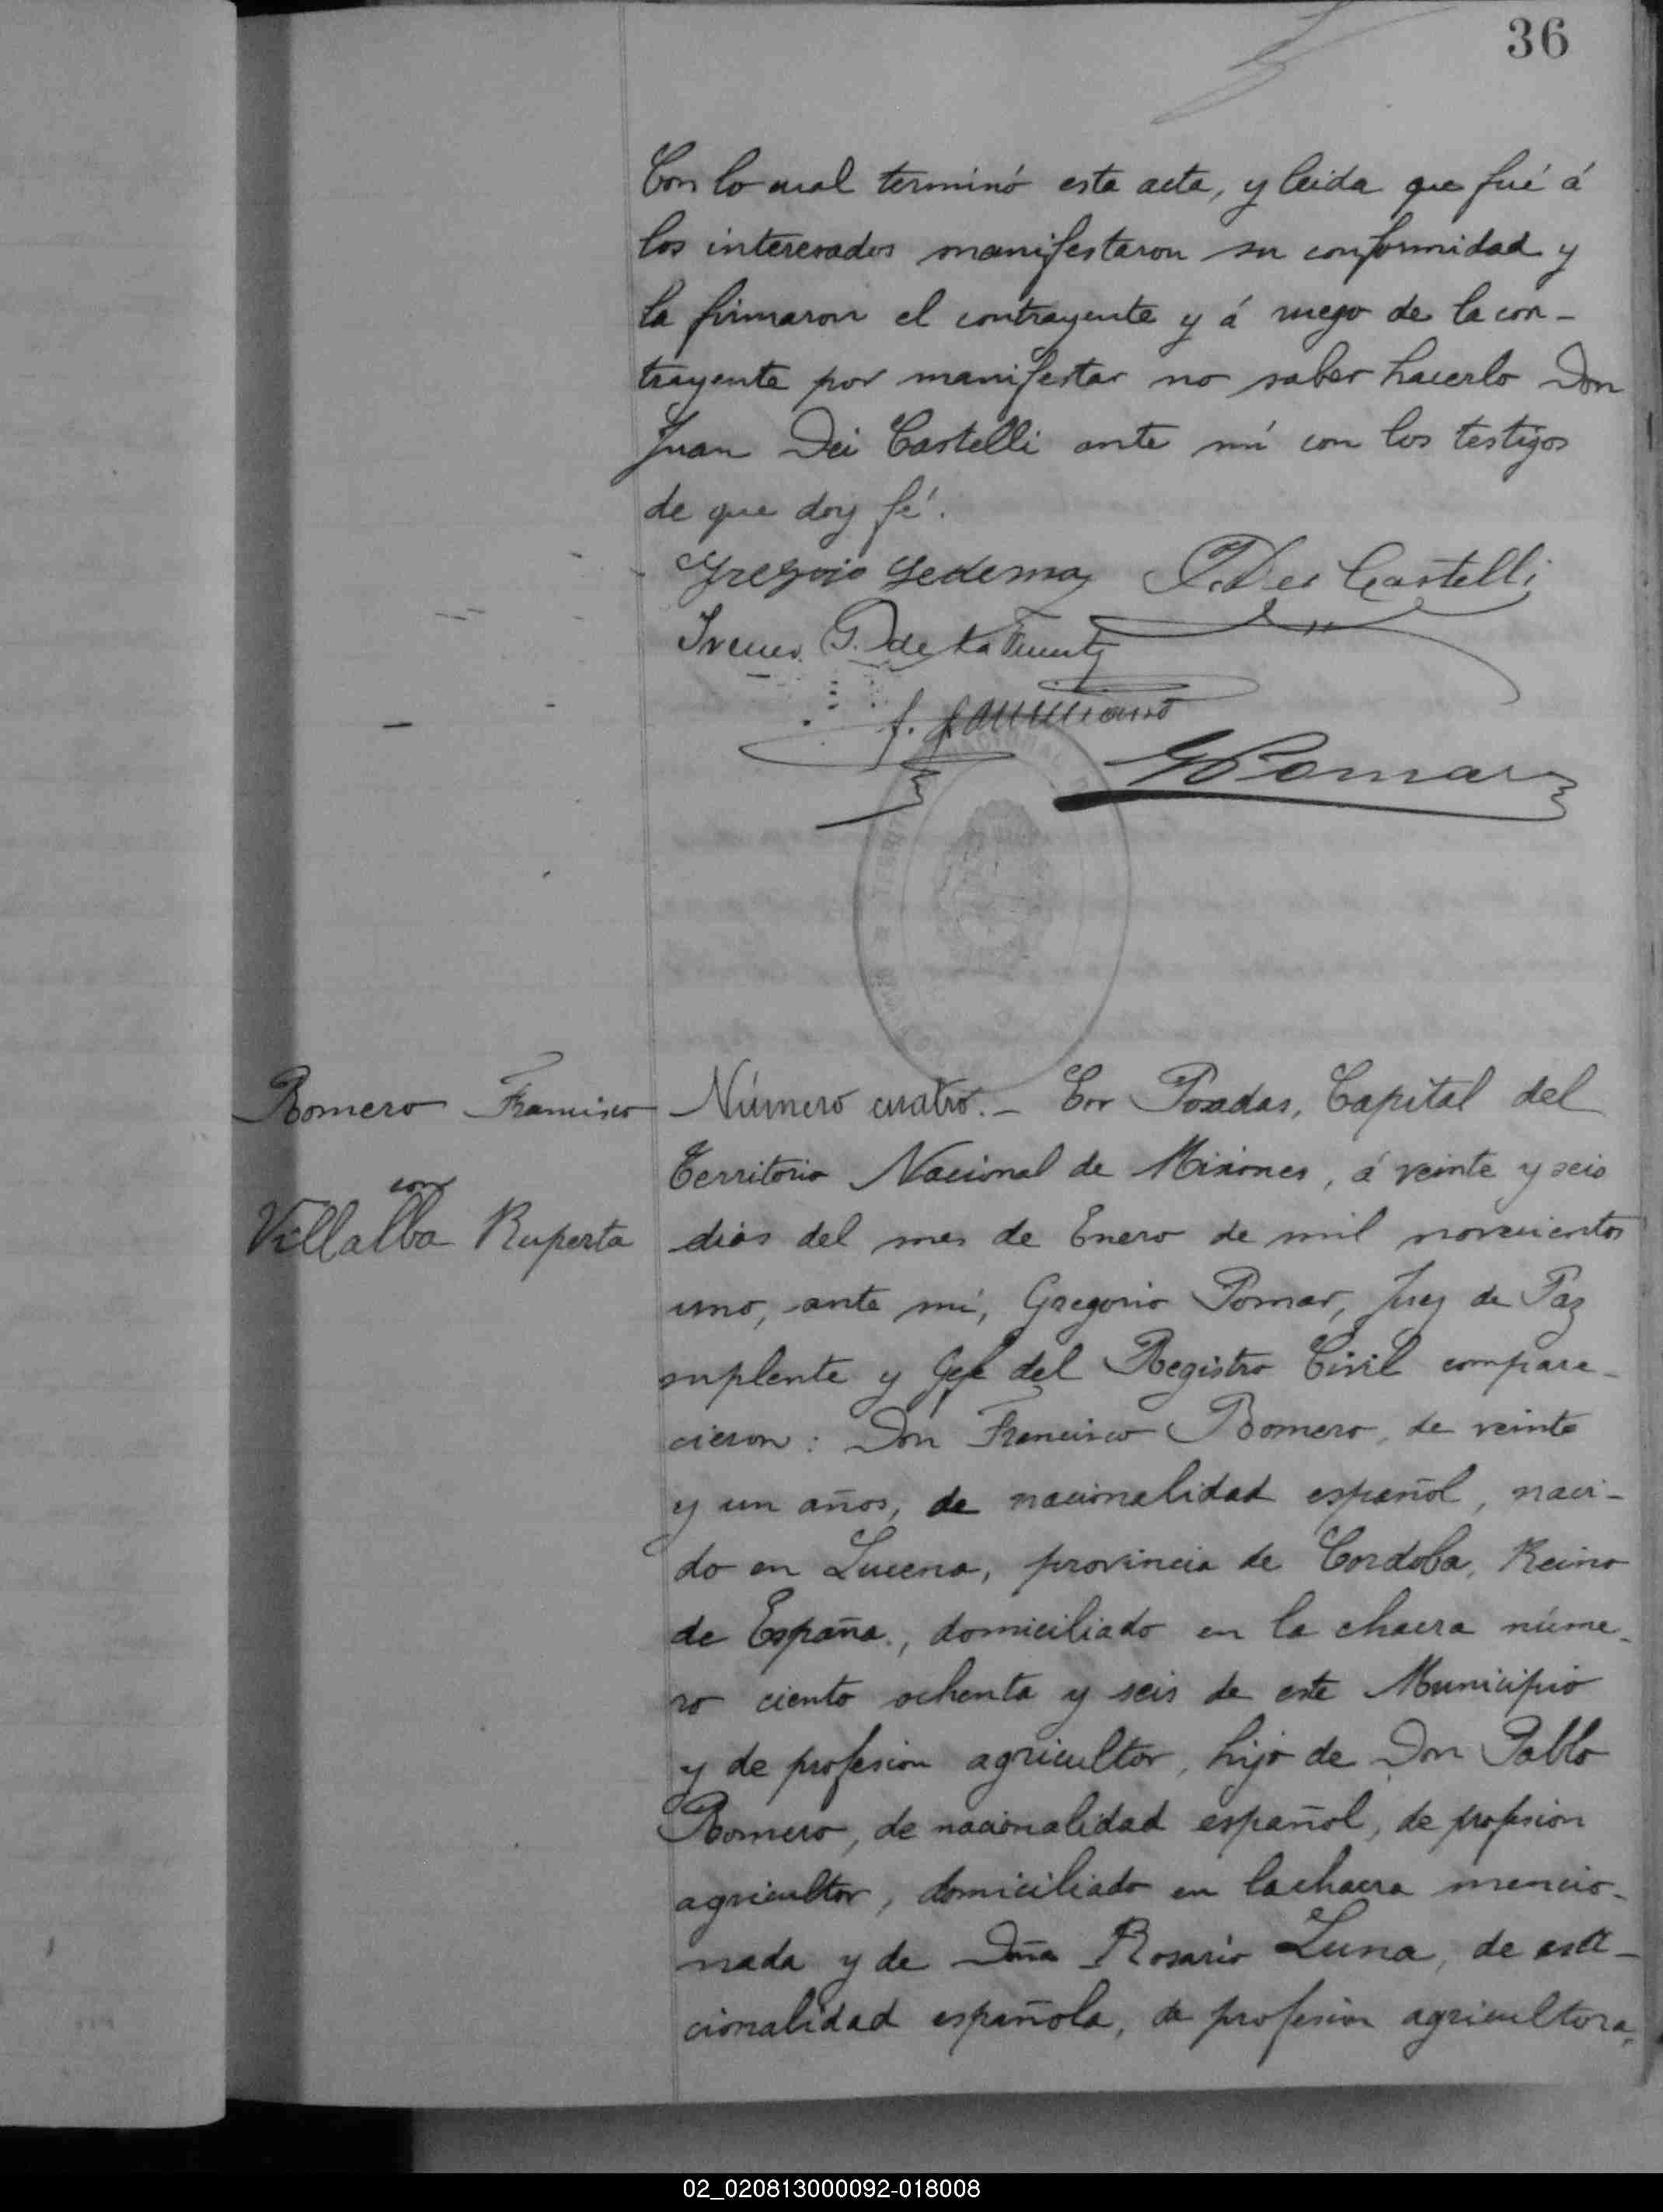 36
Con lo cual terminó esta acta, y leida que fué á
los interesados manifestaron su conformidad y
la firmaron el contrayente y á ruego de la con-
trayente por manifestar no saber hacerlo Don
Juan Dei Castelli ante mí con los testigos
de que doy fé.
Gregorio Ledesma J. Dei Castelli
Ireneo G. de la Fuente
G Pomar
Romero Francisco
con
Villalba Ruperta
Número cuatro.- En Posadas, Capital del
Territorio Nacional de Misiones, á veinte y seis
dias del mes de Enero de mil novecientos
uno, ante mí, Gregorio Pomar, Juez de Paz
suplente y Gefe del Registro Civil compare-
cieron: Don Francisco Romero, de veinte
y un años, de nacionalidad español, naci-
do en Lucena, provincia de Cordoba, Reino
de España., domiciliado en la chacra núme-
ro ciento ochenta y seis de este Municipio
y de profesion agricultor, hijo de Don Pablo
Romero, de nacionalidad español, de profesion
agricultor, domiciliado en la chacra mencio-
nada y de Doña Rosario Luna, de
cionalidad española, de profesion agricultora,
02_020813000092-018008